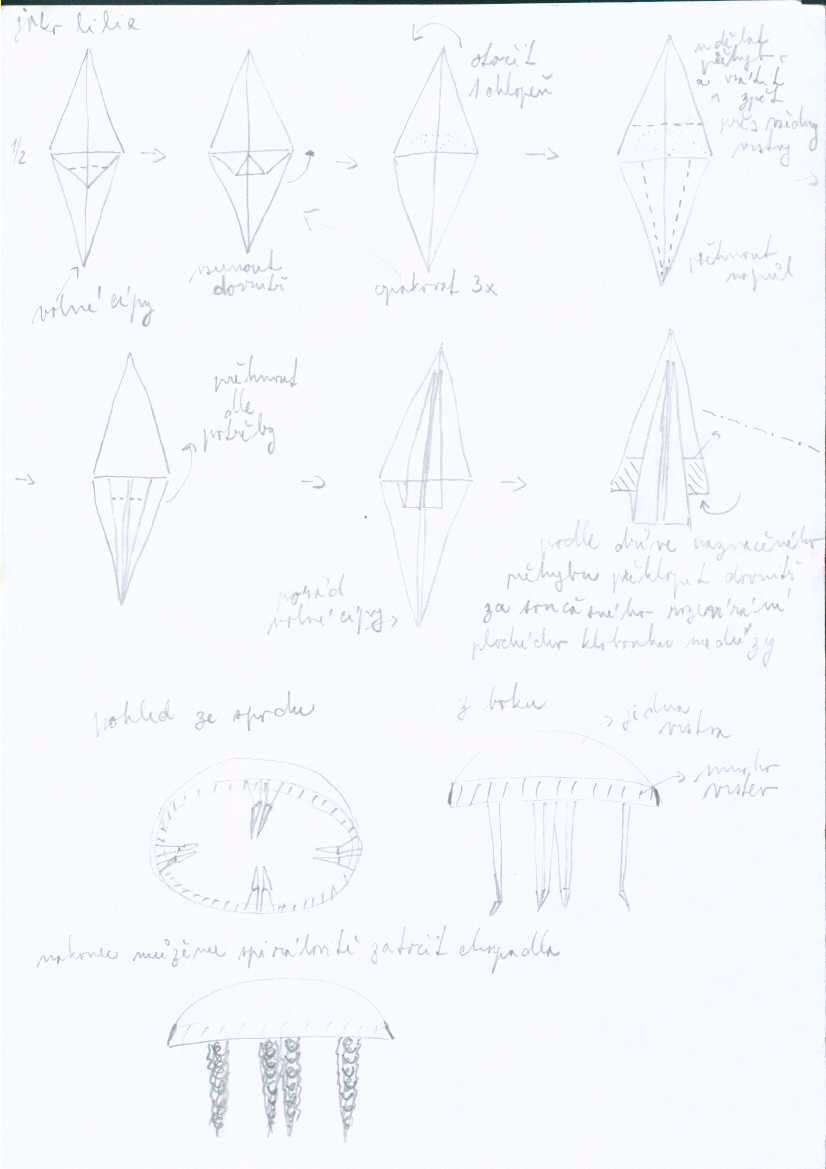 jako lilie
1/2
volné cípy
vsunout
dovnitř
otočit
1 chlopeň
opakovat 3x
udělat
přehyb
a vrátit
zpět
přes všechny
vrstvy
přehnout
napůl
přehnout
dle
potřeby
pořád
volné cípy
podle dříve naznačeného
přehybu překlopit dovnitř
za současného rozevírání
plochého klobouku medúzy
pohled ze spodu
z boku
jedna
vrstva
mnoho
vrstev
nakonec můžeme spirálovitě zatočit chapadla